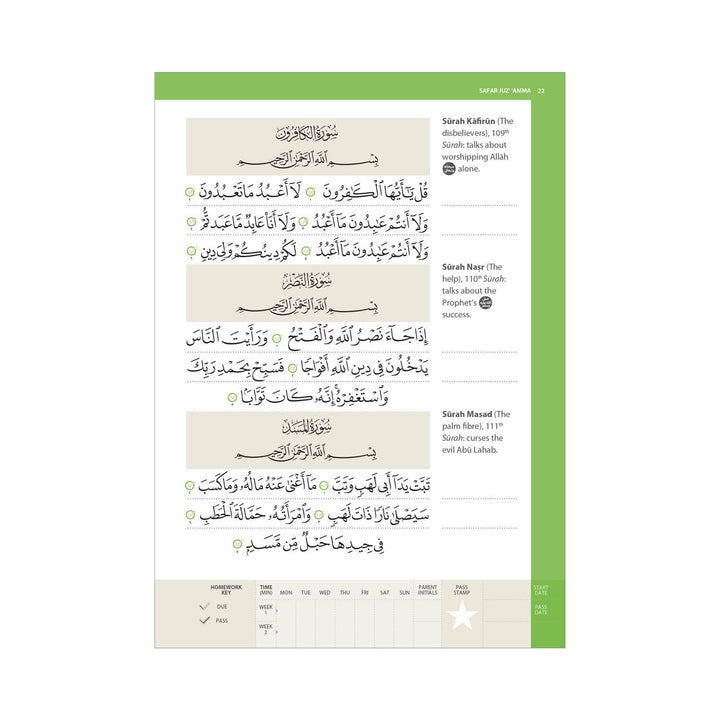 SAFAR JUZ' 'AMMA 22
سُورَةُ الْكَافِرُونَ
بِسْمِ اللَّهِ الرَّحْمَٰنِ الرَّحِيمِ
قُلْ يَٰٓأَيُّهَا ٱلْكَٰفِرُونَ ۝ لَآ أَعْبُدُ مَا تَعْبُدُونَ ۝
وَلَآ أَنتُمْ عَٰبِدُونَ مَآ أَعْبُدُ ۝ وَلَآ أَنَا۠ عَابِدٌ مَّا عَبَدتُّمْ ۝
وَلَآ أَنتُمْ عَٰبِدُونَ مَآ أَعْبُدُ ۝ لَكُمْ دِينُكُمْ وَلِىَ دِينِ ۝
Sūrah Kāfirūn (The
disbelievers), 109th
Sūrah: talks about
worshipping Allāh
alone.
سُورَةُ النَّصْرِ
بِسْمِ اللَّهِ الرَّحْمَٰنِ الرَّحِيمِ
إِذَا جَآءَ نَصْرُ ٱللَّهِ وَٱلْفَتْحُ ۝ وَرَأَيْتَ ٱلنَّاسَ
يَدْخُلُونَ فِى دِينِ ٱللَّهِ أَفْوَاجًا ۝ فَسَبِّحْ بِحَمْدِ رَبِّكَ
وَٱسْتَغْفِرْهُ ۚ إِنَّهُۥ كَانَ تَوَّابًۢا ۝
Sūrah Naṣr (The
help), 110th Sūrah:
talks about the
Prophet's
success.
سُورَةُ الْمَسَدِ
بِسْمِ اللَّهِ الرَّحْمَٰنِ الرَّحِيمِ
تَبَّتْ يَدَآ أَبِى لَهَبٍ وَتَبَّ ۝ مَآ أَغْنَىٰ عَنْهُ مَالُهُۥ وَمَا كَسَبَ ۝
سَيَصْلَىٰ نَارًا ذَاتَ لَهَبٍ ۝ وَٱمْرَأَتُهُۥ حَمَّالَةَ ٱلْحَطَبِ ۝
فِى جِيدِهَا حَبْلٌ مِّن مَّسَدٍۭ ۝
Sūrah Masad (The
palm fibre), 111th
Sūrah: curses the
evil Abū Lahab.
HOMEWORK KEY
DUE
PASS
TIME (MIN) MON TUE WED THU FRI SAT SUN PARENT INITIALS PASS STAMP
WEEK 1
WEEK 2
START DATE
PASS DATE